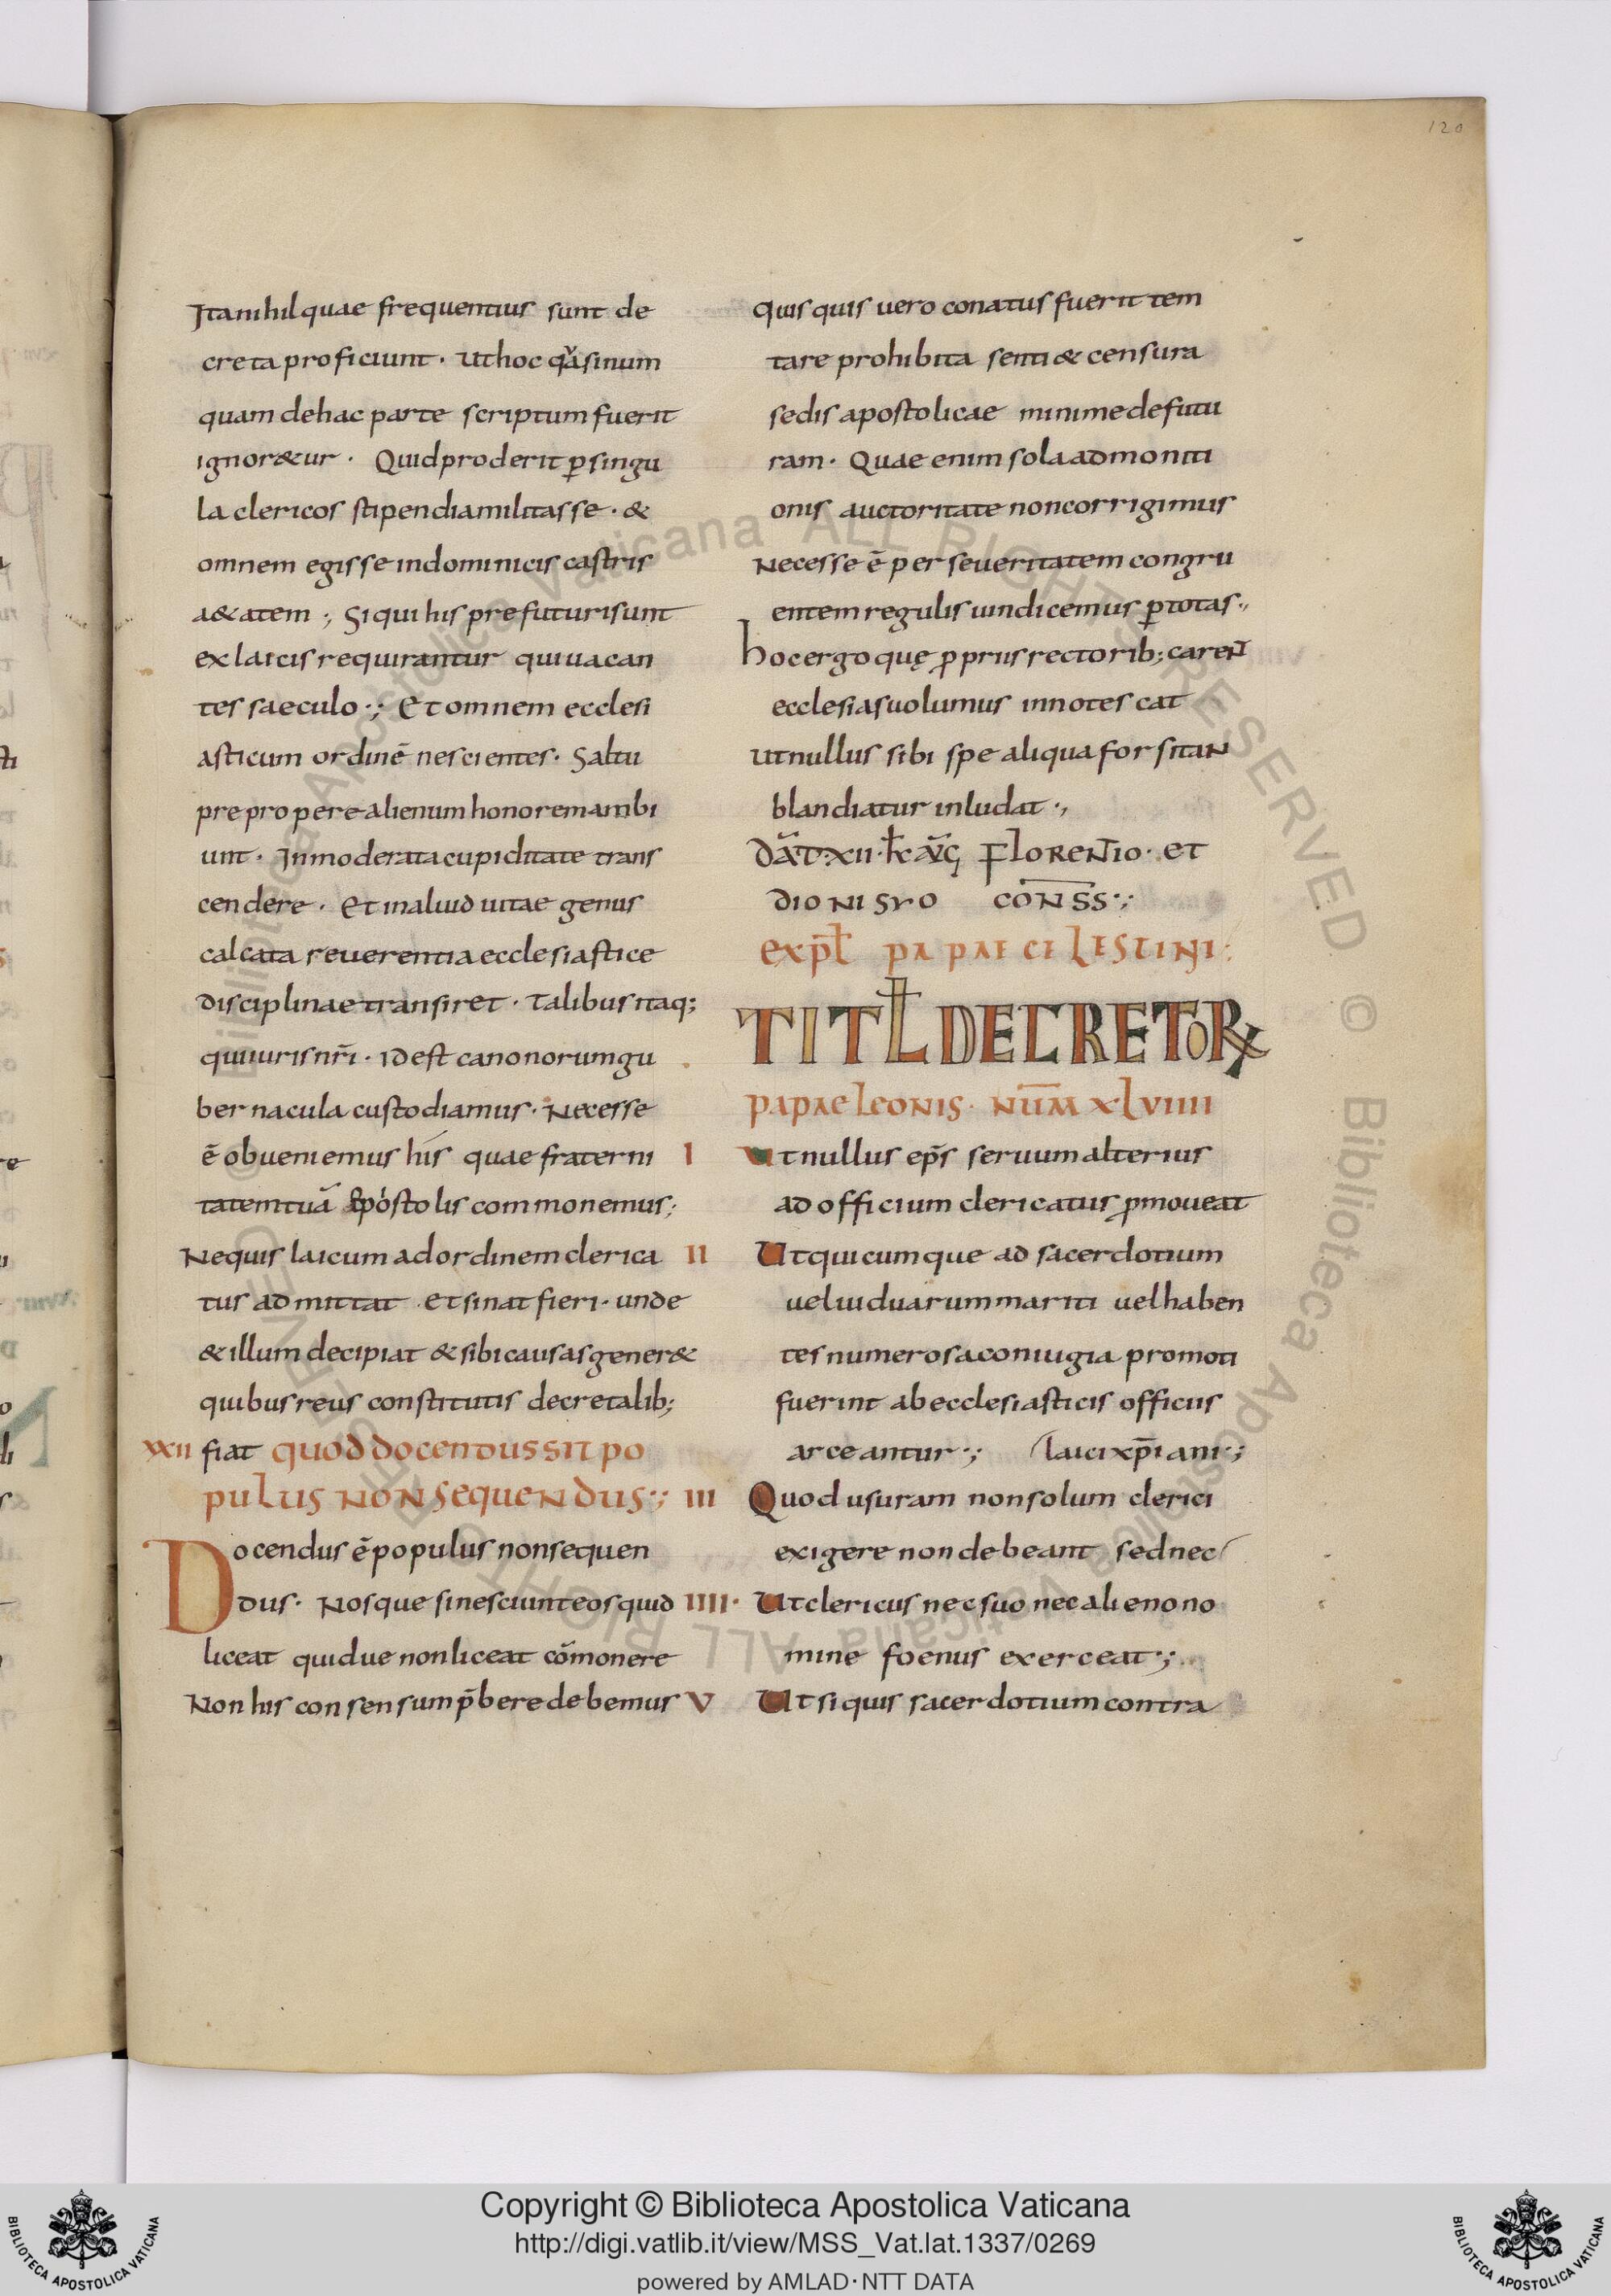 120
Ita nihil quae frequentius sunt de
creta proficiunt · ut hoc q̃a si num
quam de hac parte scriptum fuerit
ignor&ur · Quid proderit ꝑ singu
la clericos stipendia militasse · &
omnem egisse in dominicis castris
a&atem ; Si qui his prefuturi sunt
ex laicis requirantur qui uacan
tes saeculo ·; Et omnem ecclesi
asticum ordinē nescientes · Saltu
prepropere alienum honorem ambi
unt · Inmoderata cupiditate trans
cendere · Et in aliud uitae genus
calcata reuerentia ecclesiastice
disciplinae transiret · Talibus itaq;
qui iuris nr̄i · id est canonorum gu
bernacula custodiamus · Necesse
ē obuiemus his quae fraterni
tatem tuā apostolis commonemus ;
Ne quis laicum ad ordinem clerica
tus admittat et sinat fieri · unde
& illum decipiat & sibi causas gener&
quibus reus constitutis decretalib;
XXII fiat quod docendus sit po
pulus non sequendus ·;
Docendus ē populus non sequen
dus · Nosque si nesciunt eos quid
liceat quidue non liceat cōmonere
Non his consensum p̄bere debemus
Quisquis uero conatus fuerit tem
tare prohibita senti& censura
sedis apostolicae minime defutu
ram · Quae enim sola admoniti
onis auctoritate non corrigimus
Necesse ē per seueritatem congru
entem regulis uindicemus ꝑ totas ·,
hoc ergo quę ꝓpriis rectorib; carent
ecclesias uolumus innotescat
ut nullus sibi spe aliqua forsitan
blandiatur inludat ·,
DAT · XII · KƚAUG FLORENTIO · ET
DIONISYO CONSS ·;
EXPLƚ PAPAE CELESTINI :
TITƚ DECRETORꝜ
PAPAE LEONIS · NUM̄ XLVIIII
I Ut nullus ep̄s seruum alterius
ad officium clericatus ꝓmoueat
II Ut quicumque ad sacerdotium
uel uiduarum mariti uel haben
tes numerosa coniugia promoti
fuerint ab ecclesiasticis officiis
arceantur ·; laici xp̄iani ·;
III Quod usuram non solum clerici
exigere non debeant sed nec
IIII · Ut clericus nec suo nec alieno no
mine foenus exerceat ·;
V Ut si quis sacerdotium contra
Copyright © Biblioteca Apostolica Vaticana
http://digi.vatlib.it/view/MSS_Vat.lat.1337/0269
powered by AMLAD·NTT DATA